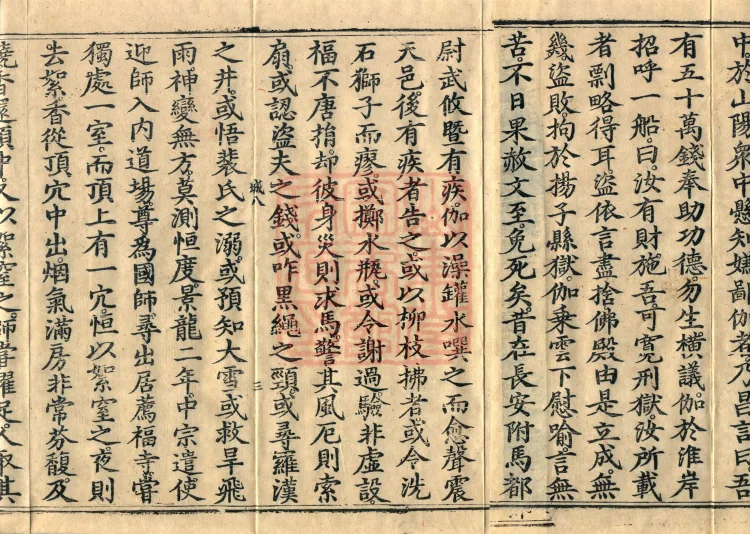 中。於山陽眾中懸知嫌鄙伽者。乃昌言曰。吾
有五十萬錢奉助功德。勿生橫議。伽於淮岸
招呼一船。曰。汝有財施。吾可寬刑獄。汝所載
者剽略得耳。盜依言盡捨。佛殿由是立成。無
幾盜敗。拘於揚子縣獄。伽乘雲下慰喻。言無
苦。不日果赦文至。免死矣。昔在長安附馬都
尉武攸暨有疾。伽以澡罐水噀之而愈。聲震
天邑。後有疾者告之。或以柳枝拂者。或令洗
石獅子而瘳。或擲水瓶。或令謝過。驗非虛設。
福不唐捐。却彼身災則求馬。警其風厄則索
扇。或認盜夫之錢。或咋黑繩之頸。或尋羅漢
城八 三
之井。或悟裴氏之溺。或預知大雪。或救旱飛
雨。神變無方。莫測恒度。景龍二年。中宗遣使
迎師入內道場。尊為國師。尋出居薦福寺。嘗
獨處一室。而頂上有一穴。恒以絮窒之。夜則
去絮。香從頂穴中出。烟氣滿房。非常芬馥。及
曉香還頂中。又以絮窒之。師嘗濯足。人取其